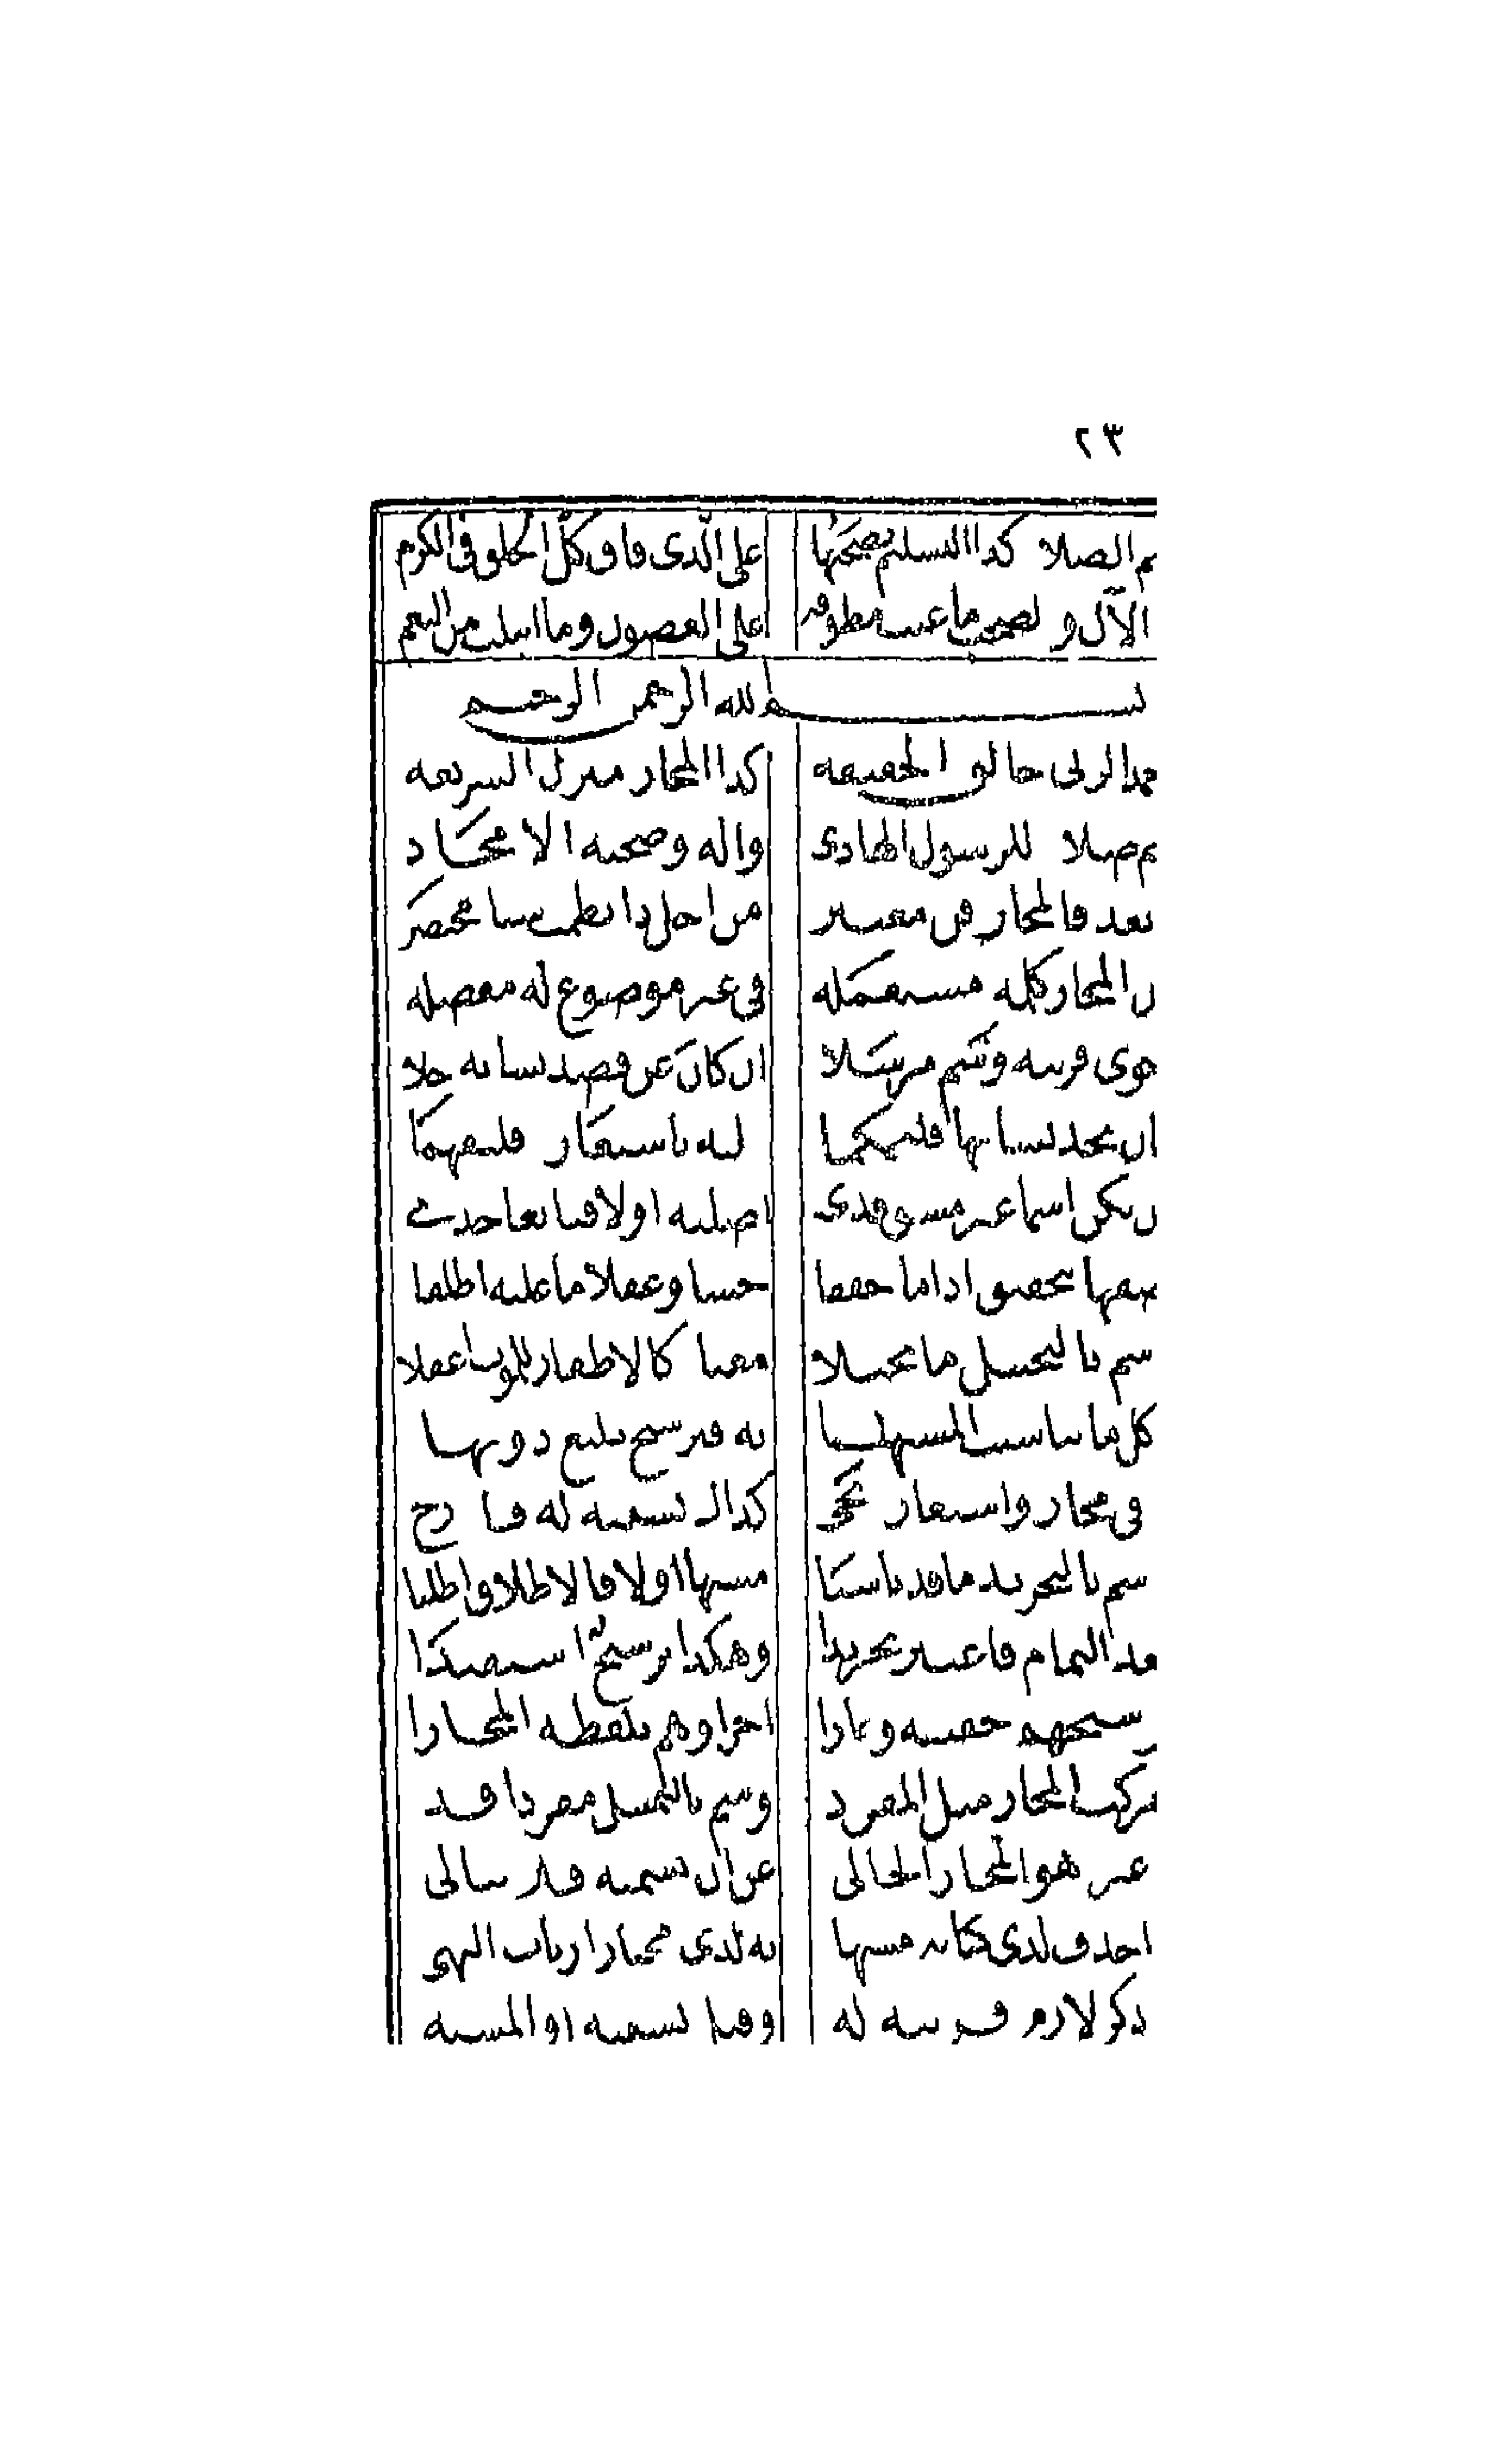 ٢٣
ثم الصلاة كذا التسليم يصحبها على الذى فاق كل الخلق فى الكرم
الآل و لصحب ما غنت مطوقه على الغصون وما اسلت من النعم
بسم الله الرحمن الرحيم
حمدا لمولى خالق الحقيقه كذا المجاز منزل الشريعه
ثم صلاة للرسول الهادى واله وصحبه الامجاد
بعد فالمجاز فن معتبر من اجل ذا نظمت مختصر
ن المجاز كلمه مستعمله فى غير موضوع له مفصله
حوى قرينه وسم مرسلا ان كان عن قصد تشابه خلا
ان تجد تشابها فلتحكما ليه باستعار فلتفهما
ن يكن اسما غير مشتق فذى اصليه اولا فتابعا خذى
سمها تحقيق اذا ما حققا حسا وعقلا ما عليه اطلقا
سم بالتخييل ما تخيلا معنا كالاظفار للموت اعقلا
كل ما يناسب المشبها به فترشيح بليغ ذو بها
فى مجاز واستعار كذا لتشبيه له
سم بالتجريد ما قد ناسبا مشبها اولا فالاطلاق اطلبا
بعد التمام فاعتبر تجريدا وهكذا ترشيح
حقيقه و اخرا وهم بلفظه المجازا
مركب المجاز مثل المفرد وسم بالتمثيل مفردا قد
غير هو المجاز الخالى عن ان تشبيه
احذف لدى كنايه مشبها به لدى مختار ارباب النهى
ذكر لازم قرينه له وقيل تشبيه او المشبه